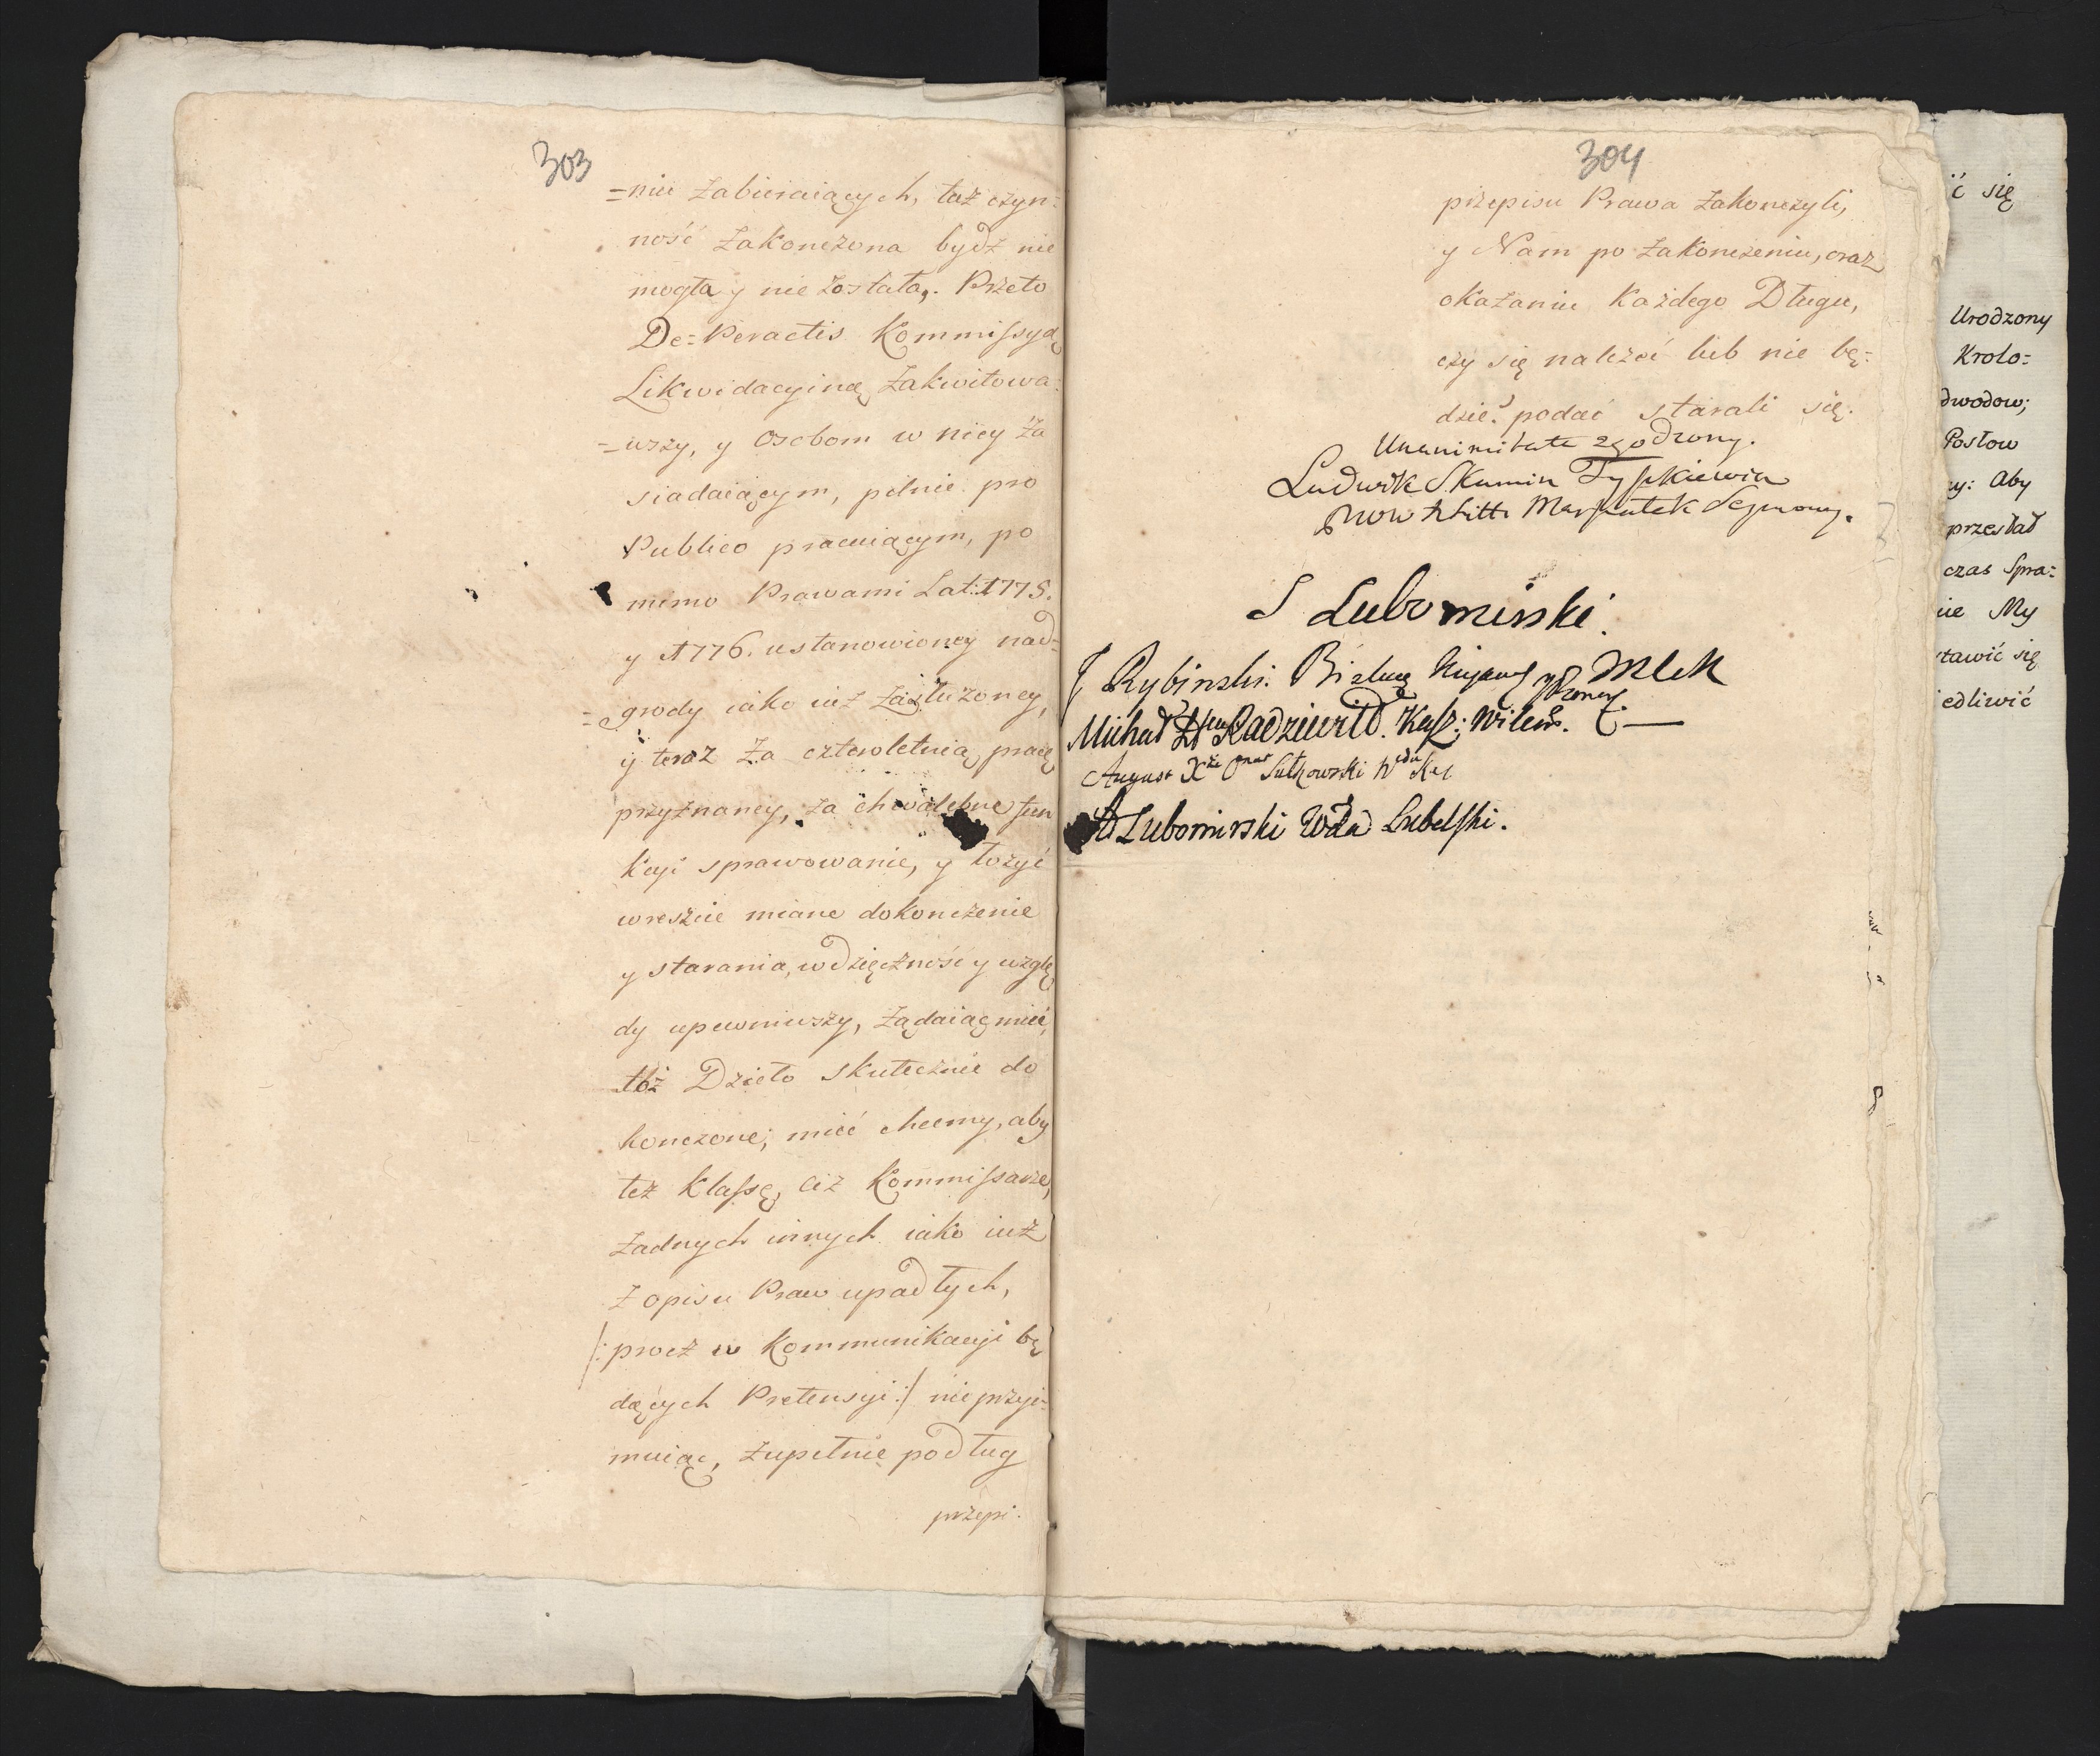 303
=nie zabieraiących, taż czyn=
ność zakonczona bydź nie
mogła y nie została,. Przeto
De=Peractis Kommissyą
Likwidacyiną zakwitowa=
=wszy, y Osobom w niey za
siadaiącym, pilnie pro
Publico pracuiącym, po
mimo Prawami Lat: 1775.
y 1776. ustanowioney nad=
=grody iako iuż zasłużoney,
y teraz za czteroletnią pracę
przyznaney, za chwalebne fun
kcyi sprawowanie, y łożyć
wreszcie miane dokonczenie
y starania, wdzięczność y wzglę
dy upewniwszy, żądaiąc mieć,
toż Dzieło skutecznie do
konczone, mieć chcemy, aby
też Klassę, ciż Kommissarze,
żadnych innych iako iuż
z opisu Praw upadłych,
/:procz w Kommunikacyi bę
dących Pretensyi:/ nie przyi=
muiąc, zupełnie podług
przepi:
304
przepisu Prawa zakonczyli,
y Nam po zakonczeniu, oraz
okazaniu każdego Długu,
czy się należeć lub nie bę=
dzie? podać starali się.
Unanimitate zgodzony.
Ludwik Skumin Tyszkiewicz
Marszałek Sejmowy.
S Lubomirski.
Rybinski Biskup Kujaws y Pomor. MLK
Michał Radziwiłł. Kasz: Wileńs.
August Xże Sułkowski Wda Kal
Lubomirski Wda Lubelski.
ć się
Urodzony
Krolo=
dwodow;
Posłow
ny: Aby
przesłał
czas Spra=
ie My
tawić się
edliwić